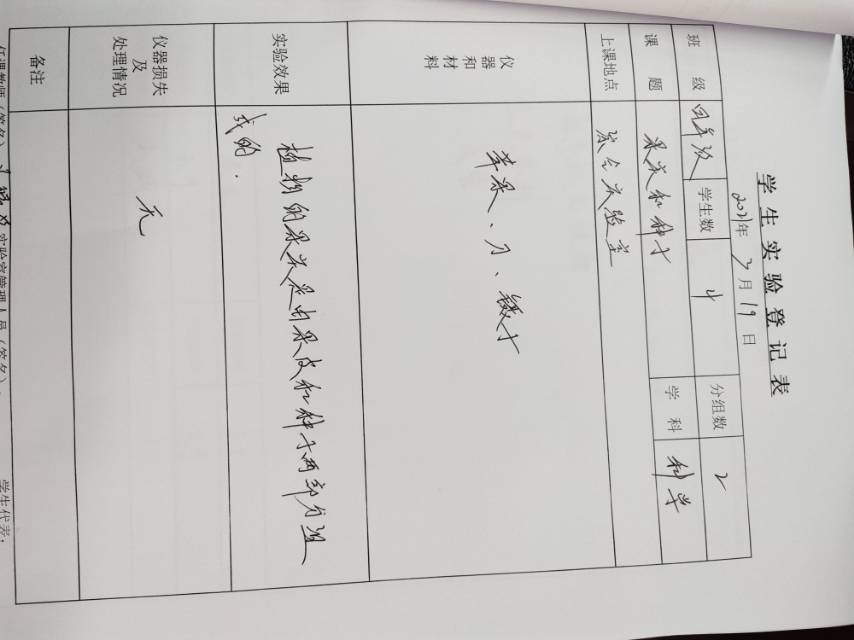 学生实验登记表
2021年 3月19日
班级 四年级 学生数 4 分组数 2
课题 果实和种子 学科 科学
上课地点 综合实验室
仪器和材料 苹果、刀、镊子
实验效果 植物的果实是由果皮和种子两部分组
成的.
仪器损失及处理情况 无
备注
任课教师(签名) 实验室管理人员(签名): 学生代表: